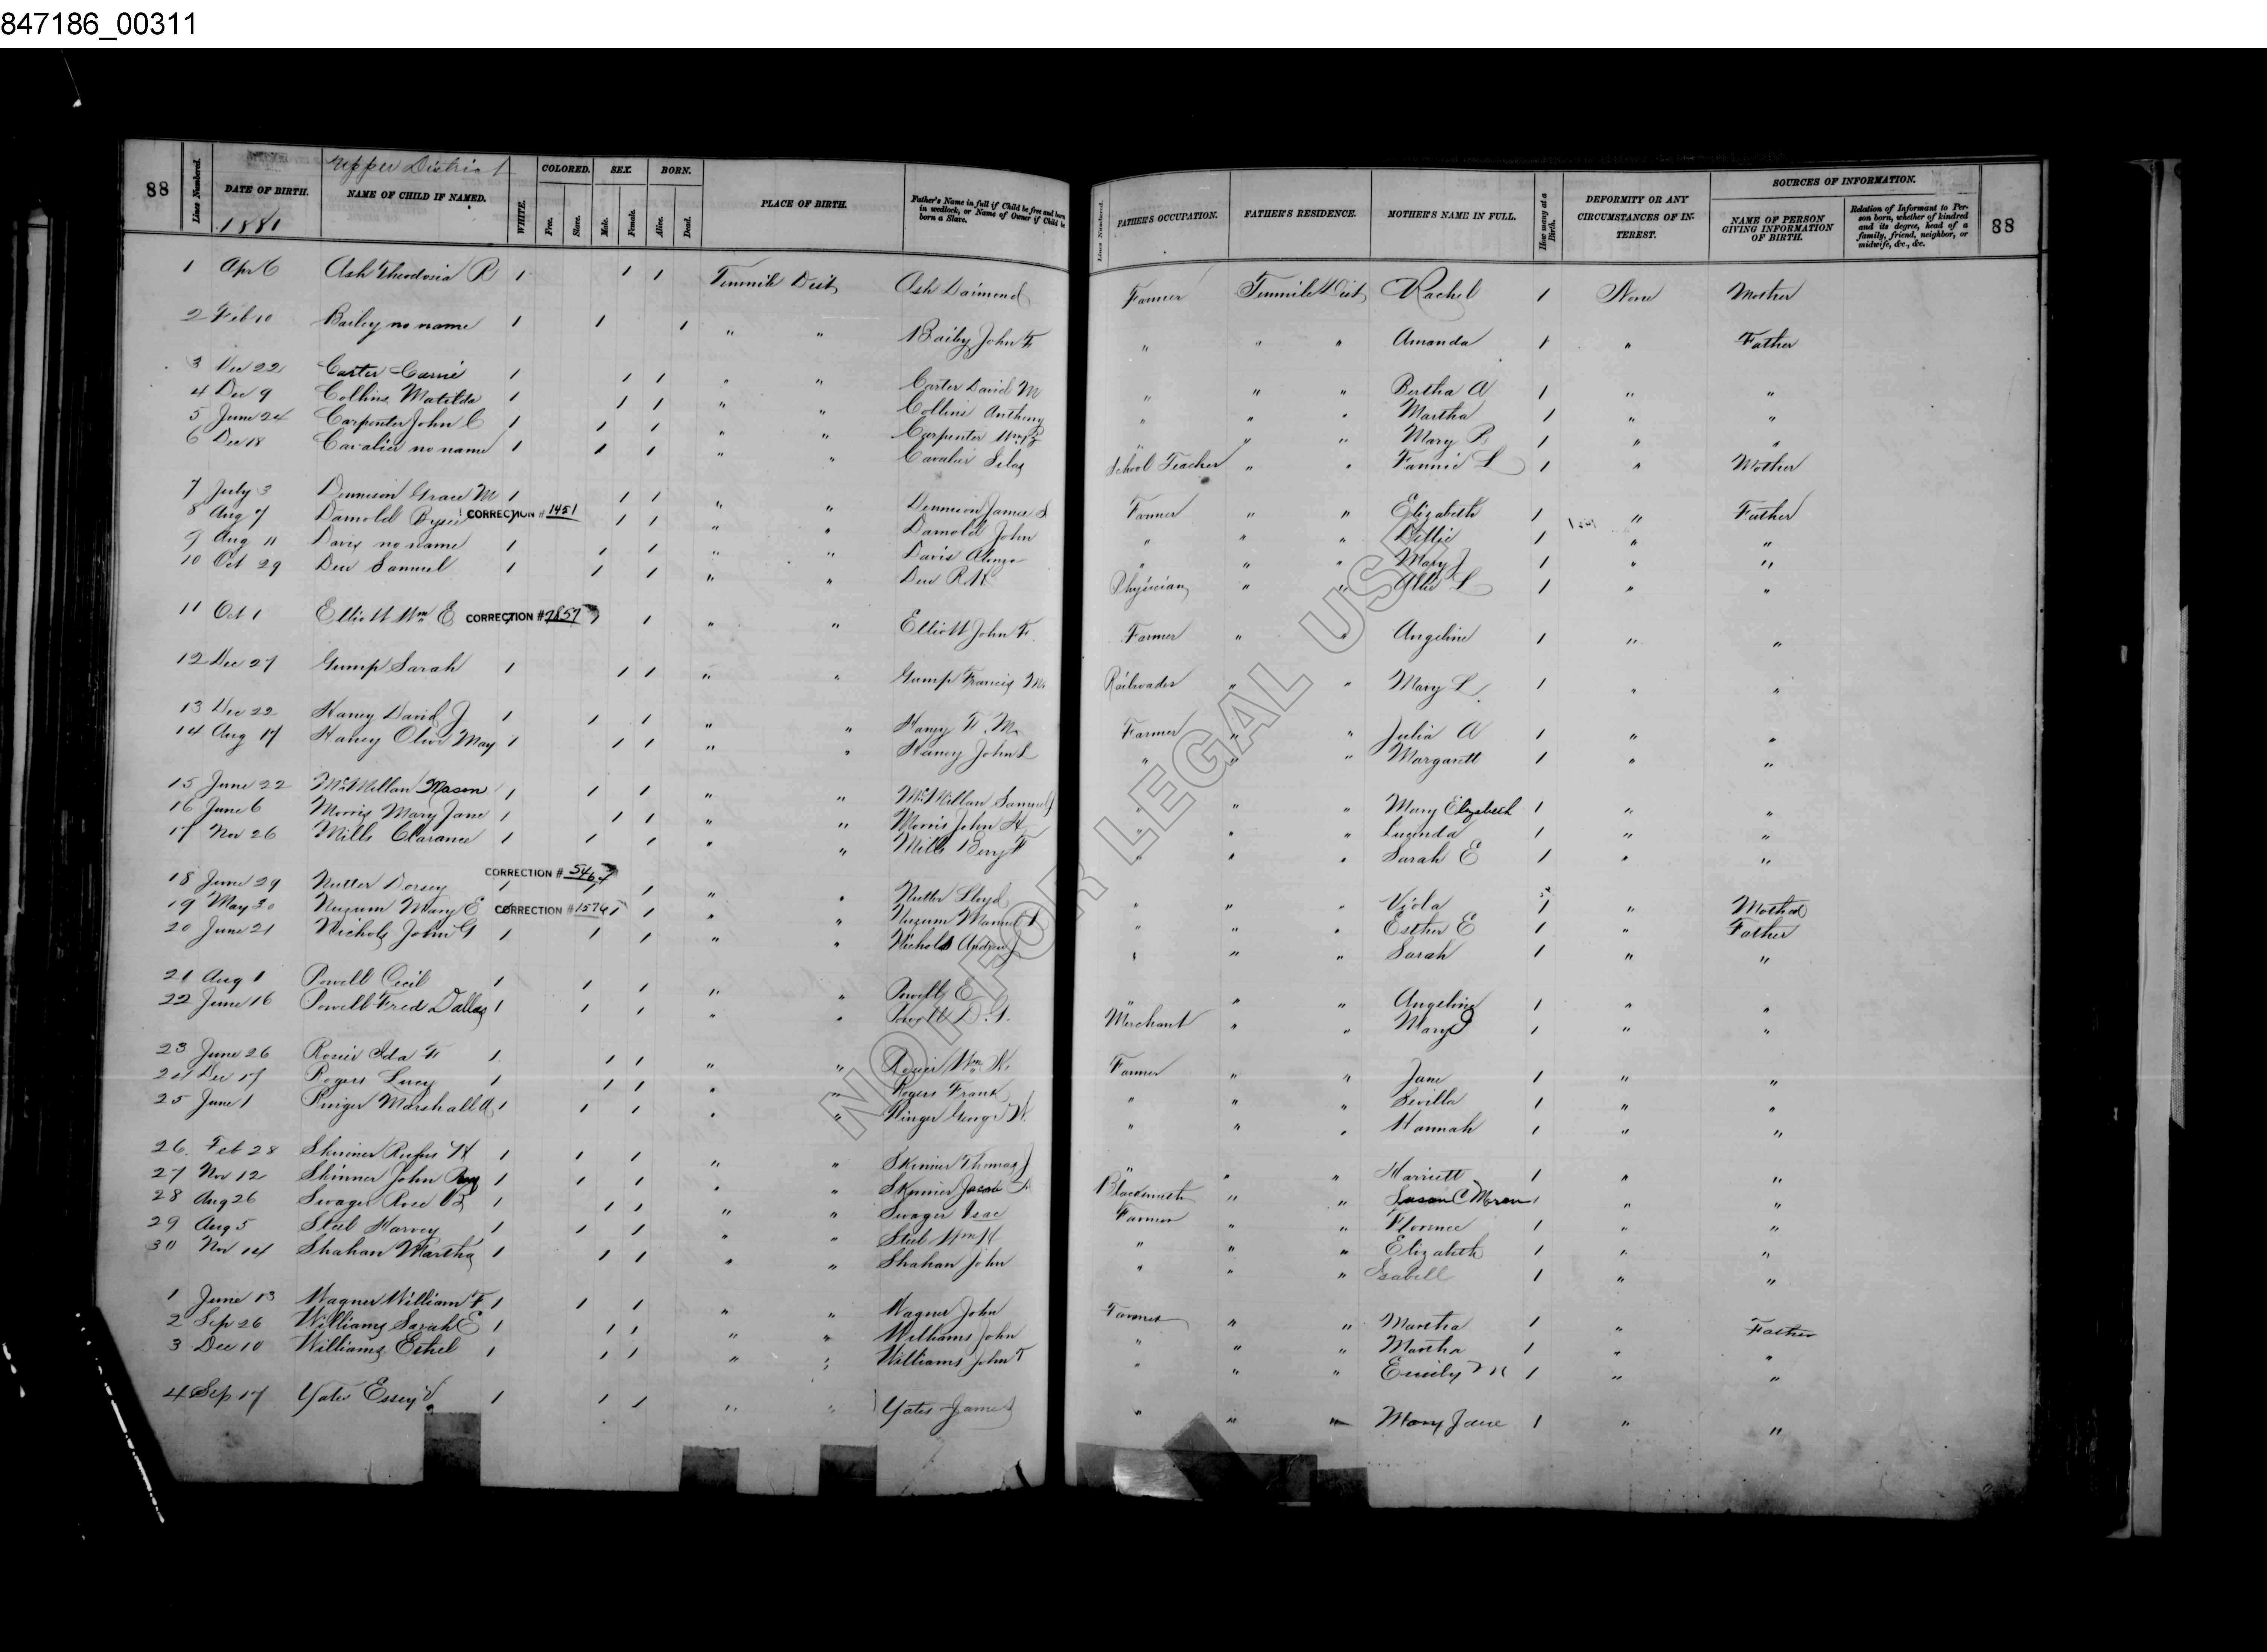 847186_00311
88
Upper District
Lines Numbered. DATE OF BIRTH. NAME OF CHILD IF NAMED. WHITE. COLORED. Free. Slave. SEX. Male. Female. BORN. Alive. Dead. PLACE OF BIRTH. Father's Name in full if Child be free and born in wedlock, or Name of Owner if Child be born a Slave.
Lines Numbered. FATHER'S OCCUPATION. FATHER'S RESIDENCE. MOTHER'S NAME IN FULL. How many at a Birth. DEFORMITY OR ANY CIRCUMSTANCES OF INTEREST. SOURCES OF INFORMATION. NAME OF PERSON GIVING INFORMATION OF BIRTH. Relation of Informant to Person born, whether of kindred and its degree, head of a family, friend, neighbor, or midwife, &c., &c. 88
1881
1 Apr 6 Ash Theodosia R 1 1 1 Tenmile Dist Ash Daimond Farmer Tenmile Dist Rachel 1 None Mother
2 Feb 10 Bailey no name 1 1 1 " " Bailey John F " " " Amanda 1 " Father
3 Dec 22 Carter Carrie 1 1 1 " " Carter David M " " " Bertha A 1 " "
4 Dec 9 Collins Matilda 1 1 1 " " Collins Anthony " " " Martha 1 " "
5 June 24 Carpenter John C 1 1 1 " " Carpenter Wm " " " Mary B 1 " "
6 Dec 18 Cavalier no name 1 1 1 " " Cavalier Silas School Teacher " " Fannie L 1 " Mother
7 July 3 Dennison Grace M 1 1 1 " " Dennison James S Farmer " " Elizabeth 1 " Father
8 Aug 7 Darnold CORRECTION # 1451 1 1 " " Darnold John " " " Dillie 1 " "
9 Aug 11 Davis no name 1 1 1 " " Davis Alonzo " " " Mary J 1 " "
10 Oct 29 Dew Samuel 1 1 1 " " Dew R H Physician " " Allie L 1 " "
11 Oct 1 Elliott Wm E CORRECTION # 7857 1 " " Elliott John F. Farmer " " Angeline 1 " "
12 Dec 27 Gump Sarah 1 1 1 " " Gump Francis M Railroader " " Mary L. 1 " "
13 Dec 22 Haney David J 1 1 1 " " Haney F. M. Farmer " " Julia A 1 " "
14 Aug 17 Haney Olive May 1 1 1 " " Haney John L " " " Margarett 1 " "
15 June 22 McMillan Mason 1 1 1 " " McMillan Samuel J " " " Mary Elizabeth 1 " "
16 June 6 Morris Mary Jane 1 1 1 " " Morris John H " " " Lucinda 1 " "
17 Nov 26 Mills Clarance 1 1 1 " " Mills Berry F " " " Sarah E 1 " "
CORRECTION # 5467
18 June 29 Nutter Dorsey 1 1 1 " " Nutter Lloyd " " " Viola 1 " Mother
19 May 30 Nuzum Mary E CORRECTION # 1576 1 1 " " Nuzum Manuel " " " Esther E 1 " Father
20 June 21 Nichols John G 1 1 1 " " Nichols Andrew J " " " Sarah 1 " "
21 Aug 1 Powell Cecil 1 1 1 " " Powell E " " " Angeline 1 " "
22 June 16 Powell Fred Dallas 1 1 1 " " Powell D. Merchant " " Mary 1 " "
23 June 26 Rosier Ida F 1 1 1 " " Rosier Wm H. Farmer " " Jane 1 " "
24 Dec 17 Rogers Lucy 1 1 1 " " Rogers Frank " " " Sevilla 1 " "
25 June 1 Ringer Marshall A 1 1 1 " " Ringer George W. " " " Hannah 1 " "
26 Feb 28 Skinner Rufus H 1 1 1 " " Skinner Thomas J " " " Harriett 1 " "
27 Nov 12 Skinner John Ray 1 1 1 " " Skinner Jacob Blacksmith " " Susan C Moran 1 " "
28 Aug 26 Swager Rose B 1 1 1 " " Swager Isac Farmer " " Florence 1 " "
29 Aug 5 Steel Harvey 1 1 1 " " Steel Wm H " " " Elizabeth 1 " "
30 Nov 14 Shahan Martha 1 1 1 " " Shahan John " " " Isabell 1 " "
1 June 13 Wagner William F 1 1 1 " " Wagner John Farmer " " Martha 1 " Father
2 Sep 26 Williams Sarah E 1 1 1 " " Williams John " " " Martha 1 " "
3 Dec 10 Williams Ethel 1 1 1 " " Williams John T " " " Emily M 1 " "
4 Sep 17 Yates Essey V 1 1 1 " " Yates James " " " Mary Jane 1 " "
NOT FOR LEGAL USE